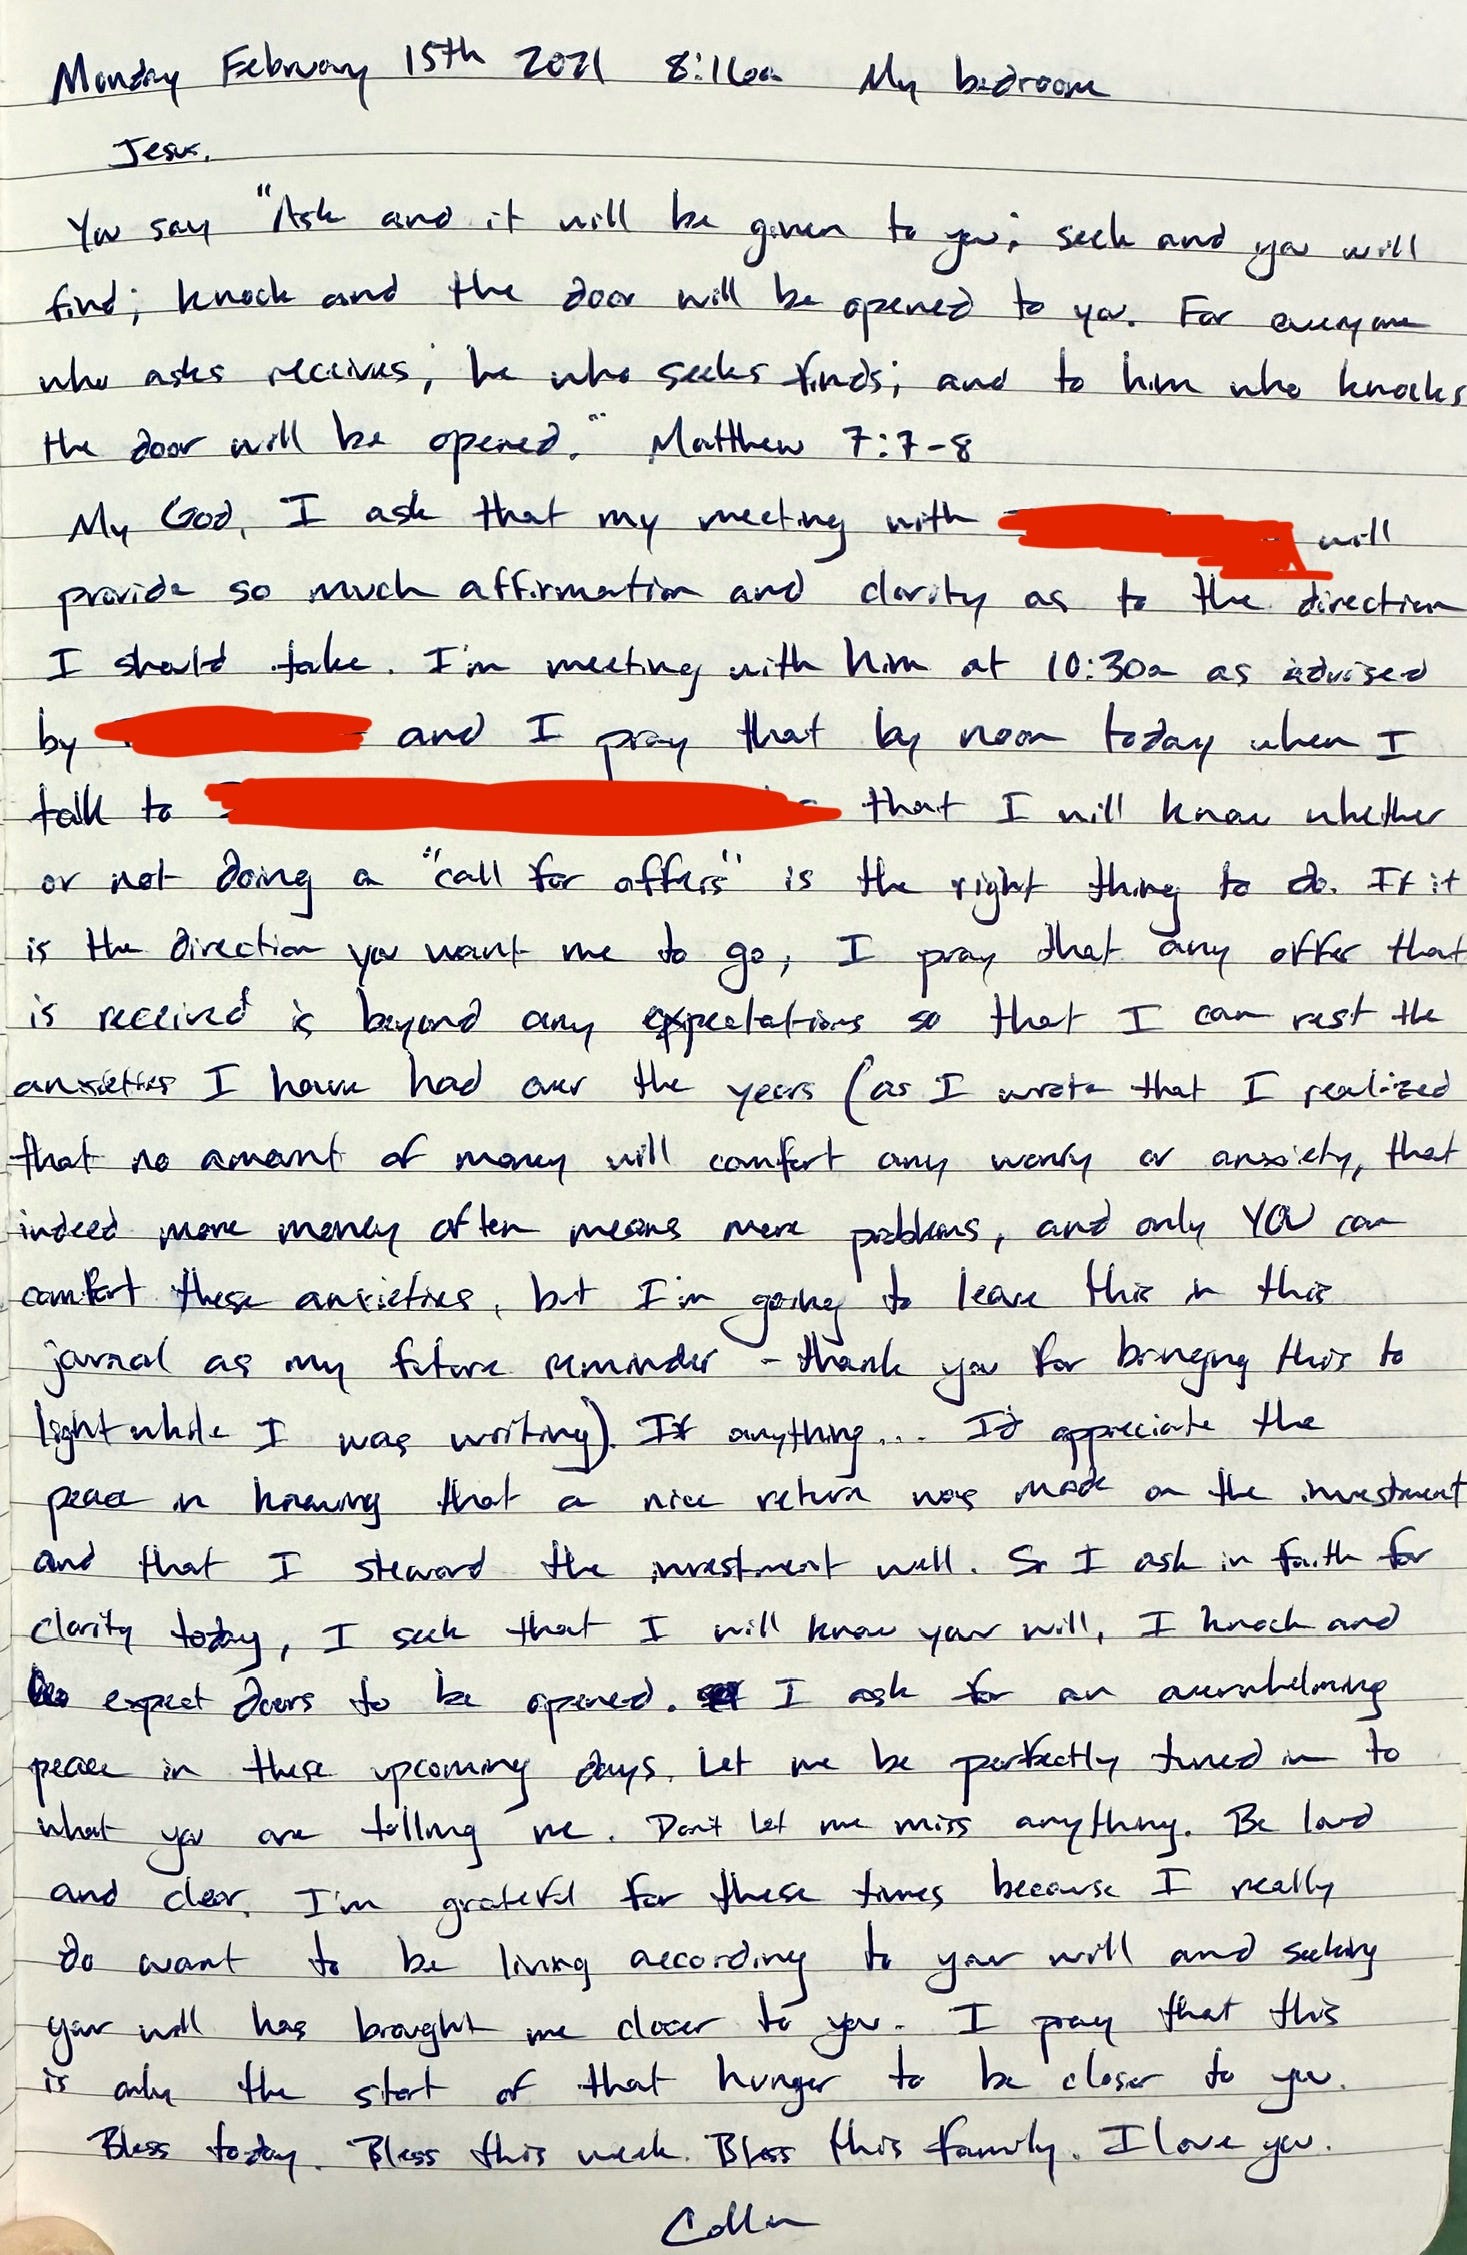 Monday February 15th 2021 8:16am My bedroom
Jesus,
You say "Ask and it will be given to you; seek and you will
find; knock and the door will be opened to you. For everyone
who asks receives; he who seeks finds; and to him who knocks
the door will be opened." Matthew 7:7-8
My God, I ask that my meeting with will
provide so much affirmation and clarity as to the direction
I should take. I'm meeting with him at 10:30a as advised
by and I pray that by noon today when I
talk to that I will know whether
or not doing a "call for offers" is the right thing to do. If it
is the direction you want me to go, I pray that any offer that
is received is beyond any expectations so that I can rest the
anxieties I have had over the years (as I wrote that I realized
that no amount of money will comfort any worry or anxiety, that
indeed more money often means more problems, and only YOU can
comfort these anxieties, but I'm going to leave this in this
journal as my future reminder - thank you for bringing this to
light while I was writing). If anything... I'd appreciate the
peace in knowing that a nice return was made on the investment
and that I steward the investment well. So I ask in faith for
clarity today, I seek that I will know your will, I knock and
expect doors to be opened. I ask for an overwhelming
peace in these upcoming days. Let me be perfectly tuned in to
what you are telling me. Don't let me miss anything. Be loud
and clear. I'm grateful for these times because I really
do want to be living according to your will and seeking
your will has brought me closer to you. I pray that this
is only the start of that hunger to be closer to you.
Bless today. Bless this week. Bless this family. I love you.